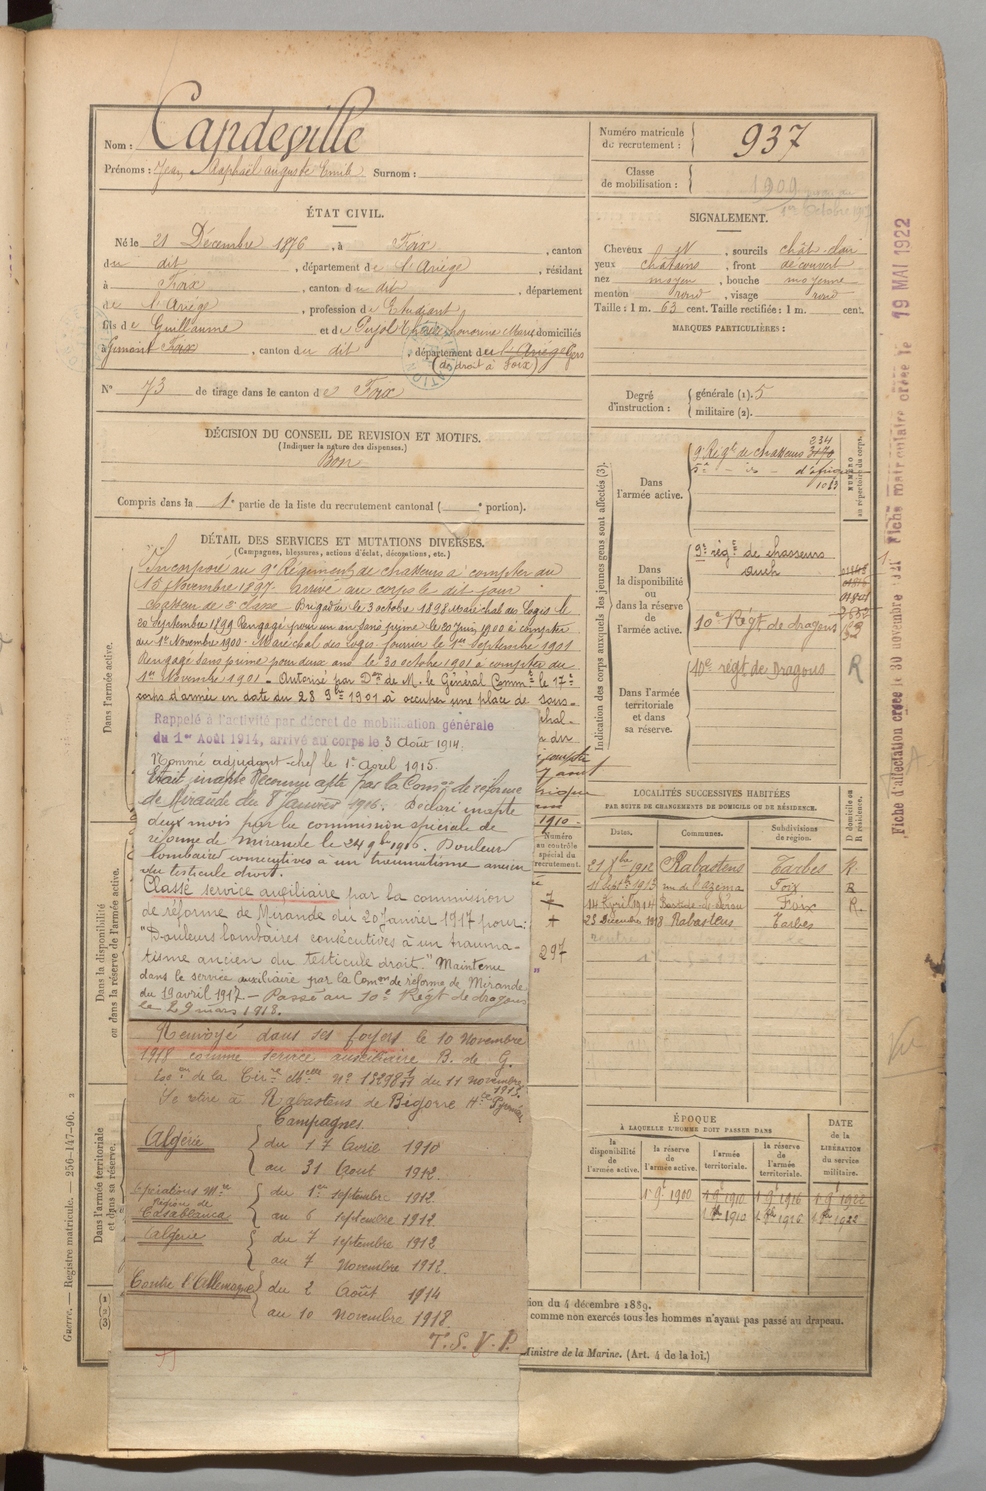 Nom : Capdeville
Prénoms : Jean Raphaël auguste Emile Surnom :
Numéro matricule
de recrutement : 937
Classe
de mobilisation : 1909
ÉTAT CIVIL.
Né le 21 Décembre 1876, à Foix, canton
du dit, département de l'Ariège, résidant
à Foix, canton du dit, département
de l'Ariège, profession de Etudiant
fils de Guillaume et de Pujol domiciliés
à Gimont Foix, canton du dit, département de l'Ariège Gers
(de droit à Foix)
N° 73 de tirage dans le canton de Foix
SIGNALEMENT.
Cheveux N, sourcils chât. clair
yeux châtains, front découvert
nez moyen, bouche moyenne
menton rond, visage rond
Taille : 1 m. 63 cent. Taille rectifiée : 1 m. cent.
MARQUES PARTICULIÈRES :
Degré
d'instruction :
générale (1). 5
militaire (2).
DÉCISION DU CONSEIL DE REVISION ET MOTIFS.
(Indiquer la nature des dispenses.)
Bon
Compris dans la 1e partie de la liste du recrutement cantonal ( e portion).
DÉTAIL DES SERVICES ET MUTATIONS DIVERSES.
(Campagnes, blessures, actions d'éclat, décorations, etc.)
Dans l'armée active.
Incorporé au 9e Régiment de chasseurs à compter du
15 Novembre 1897. Arrivé au corps le dit jour
chasseur de 2e classe. Brigadier le 3 octobre 1898 Maréchal des Logis le
20 Septembre 1899 Rengagé pour un an sans prime le 20 Juin 1900 à compter
du 1er Novembre 1900. Maréchal des Logis fourrier le 1er Septembre 1901
Rengagé sans prime pour deux ans le 30 octobre 1901 à compter du
1er Novembre 1901. Autorisé par Don de M. le Général Commt le 17e
corps d'armée en date du 28 9bre 1901 à occuper une place de sous-
Rappelé à l'activité par décret de mobilisation générale
du 1er Août 1914, arrivé au corps le 3 Août 1914.
Nommé adjudant-chef le 1er Avril 1915.
Etait inapte Reconnu apte par la Comon de réforme
de Mirande du 8 Janvier 1916. Déclaré inapte
deux mois par la commission spéciale de
réforme de Mirande le 24 9bre 1916. Douleur
lombaire consécutives à un traumatisme ancien
du testicule droit.
Classé service auxiliaire par la commission
de réforme de Mirande du 20 Janvier 1917 pour :
"Douleurs lombaires consécutives à un trauma-
tisme ancien du testicule droit." Maintenu
dans le service auxiliaire par la Comon de réforme de Mirande
du 19 avril 1917 - Passé au 10e Régt de dragons
le 29 mars 1918.
Renvoyé dans ses foyers le 10 Novembre
1918 comme service auxiliaire B. de G.
Exon de la Cire Mlle N° 13298 du 11 novembre
1918.
Se retire à Rabastens de Bigorre Htes Pyrénées
Campagnes
Algérie
du 17 Avril 1910
au 31 Aout 1912.
Opérations Mres
Région de
Casablanca
du 1er septembre 1912
au 6 septembre 1912
Algérie
du 7 septembre 1912
au 7 Novembre 1912.
Contre l'Allemagne
du 2 Août 1914
au 10 Novembre 1918.
T. S. V. P.
Dans la disponibilité
ou dans la réserve de l'armée active.
Dans l'armée territoriale
et dans sa réserve.
Indication des corps auxquels les jeunes gens sont affectés (3).
Dans
l'armée active.
9e Régt de chasseurs
234
3170
5e - d - d'afrique
1083
NUMÉRO
au répertoire du corps.
Dans
la disponibilité
ou
dans la réserve
de
l'armée active.
9e régt de chasseurs
Auch
10e Régt de dragons
Dans l'armée
territoriale
et dans
sa réserve.
10e régt de Dragons R
LOCALITÉS SUCCESSIVES HABITÉES
PAR SUITE DE CHANGEMENTS DE DOMICILE OU DE RÉSIDENCE.
Dates. Communes. Subdivisions
de région.
D domicile ou
R résidence.
21 9bre 1912 Rabastens Tarbes R.
Foix R
14 Avril 1914 Foix R.
23 Décembre 1918 Rabastens Tarbes
Numéro
au contrôle
spécial du
recrutement.
297
ÉPOQUE
À LAQUELLE L'HOMME DOIT PASSER DANS
la
disponibilité
de
l'armée active.
la
réserve
de
l'armée active.
l'armée
territoriale.
la
réserve
de
l'armée
territoriale.
DATE
de la
LIBÉRATION
du service
militaire.
1er 9e 1900 1 9e 1910 1 9e 1916 1 9e 1922
ion du 4 décembre 1889.
comme non exercés tous les hommes n'ayant pas passé au drapeau.
Ministre de la Marine. (Art. 4 de la loi.)
Guerre. — Registre matricule. — 256-147-96. 2
Fiche d'affectation créée le 30 novembre 1921 Fiche matriculaire créée le 19 MAI 1922